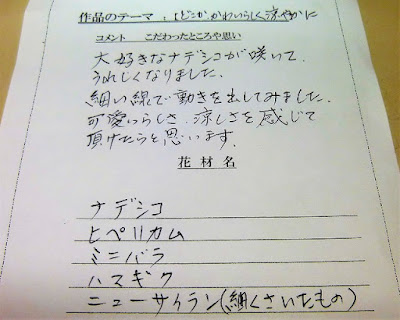 作品のテーマ：「どこか、かわいらしく涼やかに
コメント　こだわったところや思い
大好きなナデシコが咲いて、
うれしくなりました.
細い線で動きを出してみました.
可愛いらしさ、涼しさを感じて
頂けたらと思います.
花 材 名
ナデシコ
ヒペリカム
ミニバラ
ハスギク
ニューサイラン(細くさいたもの)